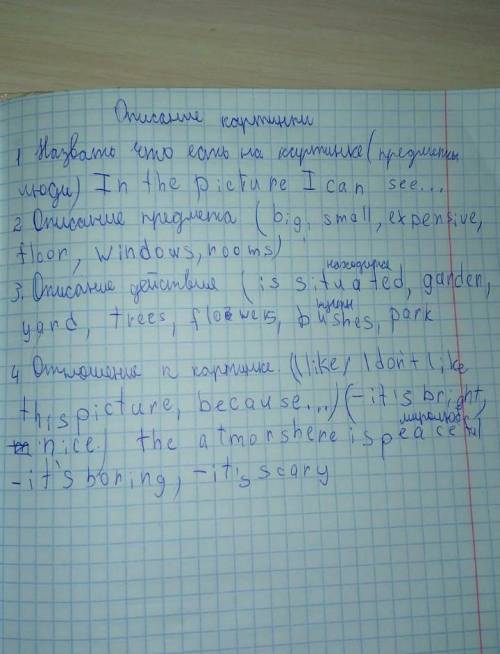 Описание картинки
1 Назвать что есть на картинке (предметы
люди) In the picture I can see...
2. Описание предмета (big, small, expensive,
floor, windows, rooms)
находится
3. Описание действия (is situated, garden,
yard, trees, flowers, bushes, park
4. Отношение к картинке. (I like/I don't like
this picture, because...) (-it is bright,
nice) the atmorshere is peaceful
-it's boring, -it's scary